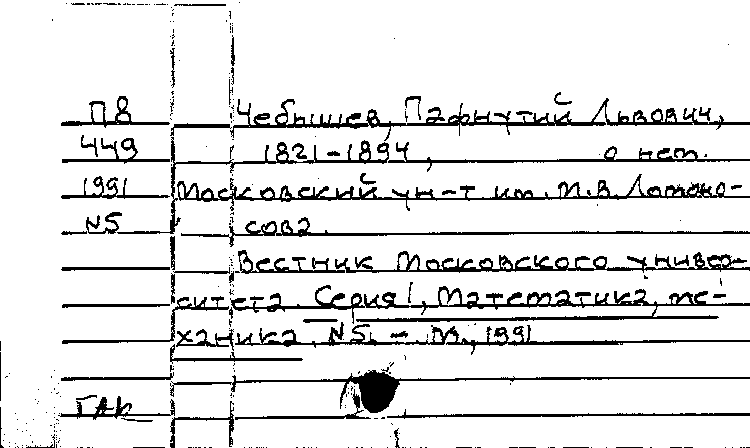 П8 Чебышев, Пафнутий Львович,
449 1821-1894, о нем.
1991 Московский ун-т им. М.В. Ломоно-
N5 сова.
Вестник Московского универ-
ситета. Серия 1, Математика, ме-
ханика. N5. - М., 1991
ГАК